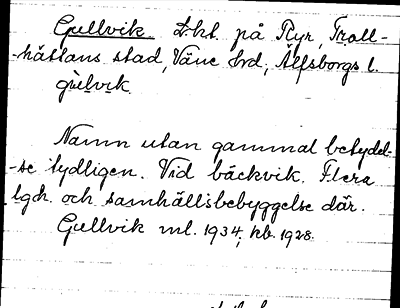 Gullvik D.ht. på Ryr, Troll-
-hättans stad, Väne hrd, Älfsborgs l.
gùlvik
Namn utan gammal betydel-
-se tydligen. Vid bäckvik. Flera
lgh. och samhällsbebyggelse där.
Gullvik ml. 1934; hb. 1928.